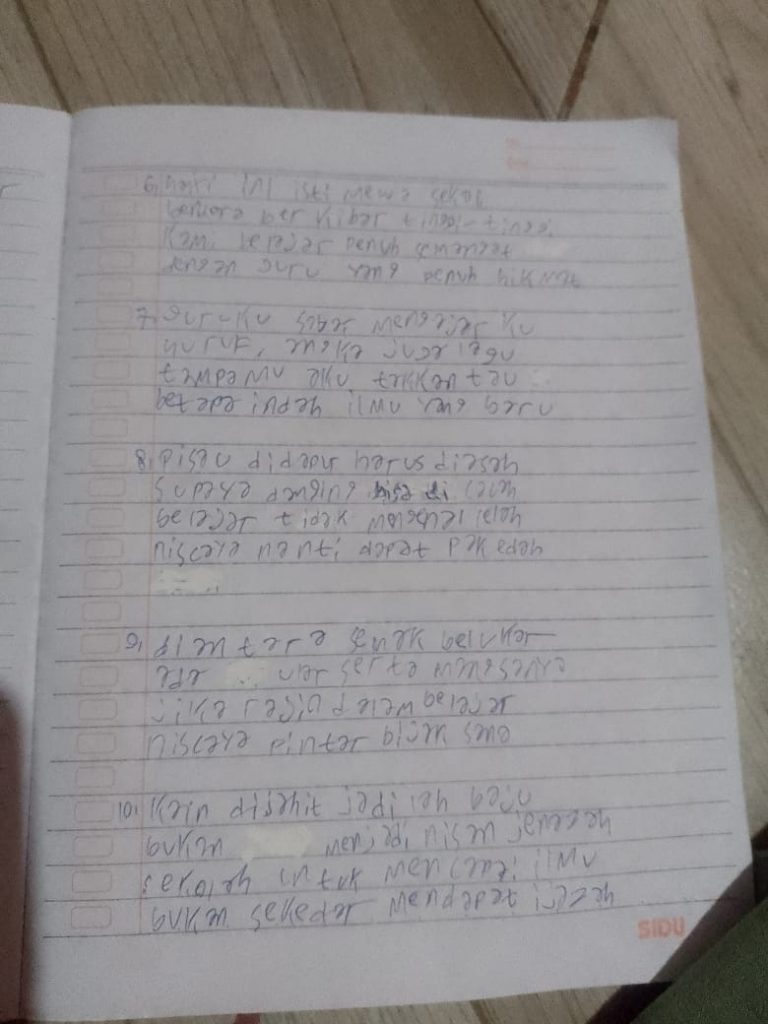 6. hari ini istimewa sekali
bendera berkibar tinggi-tinggi
kami belajar penuh semangat
dengan guru yang penuh hikmat
7. guruku sabar mengajar ku
huruf, angka juga lagu
tanpamu aku takkan tau
betapa indah ilmu yang baru
8. pisau harus diasah
supaya bisa di
belajar tidak mengenal lelah
niscaya nanti dapat
9. di antara semak belukar
ada ular serta mangsanya
jika rajin dalam belajar
niscaya pintar bijak sana
10. kain jadi baju
bukan
sekolah untuk mencari ilmu
bukan sekedar mendapat ijazah
SIDU